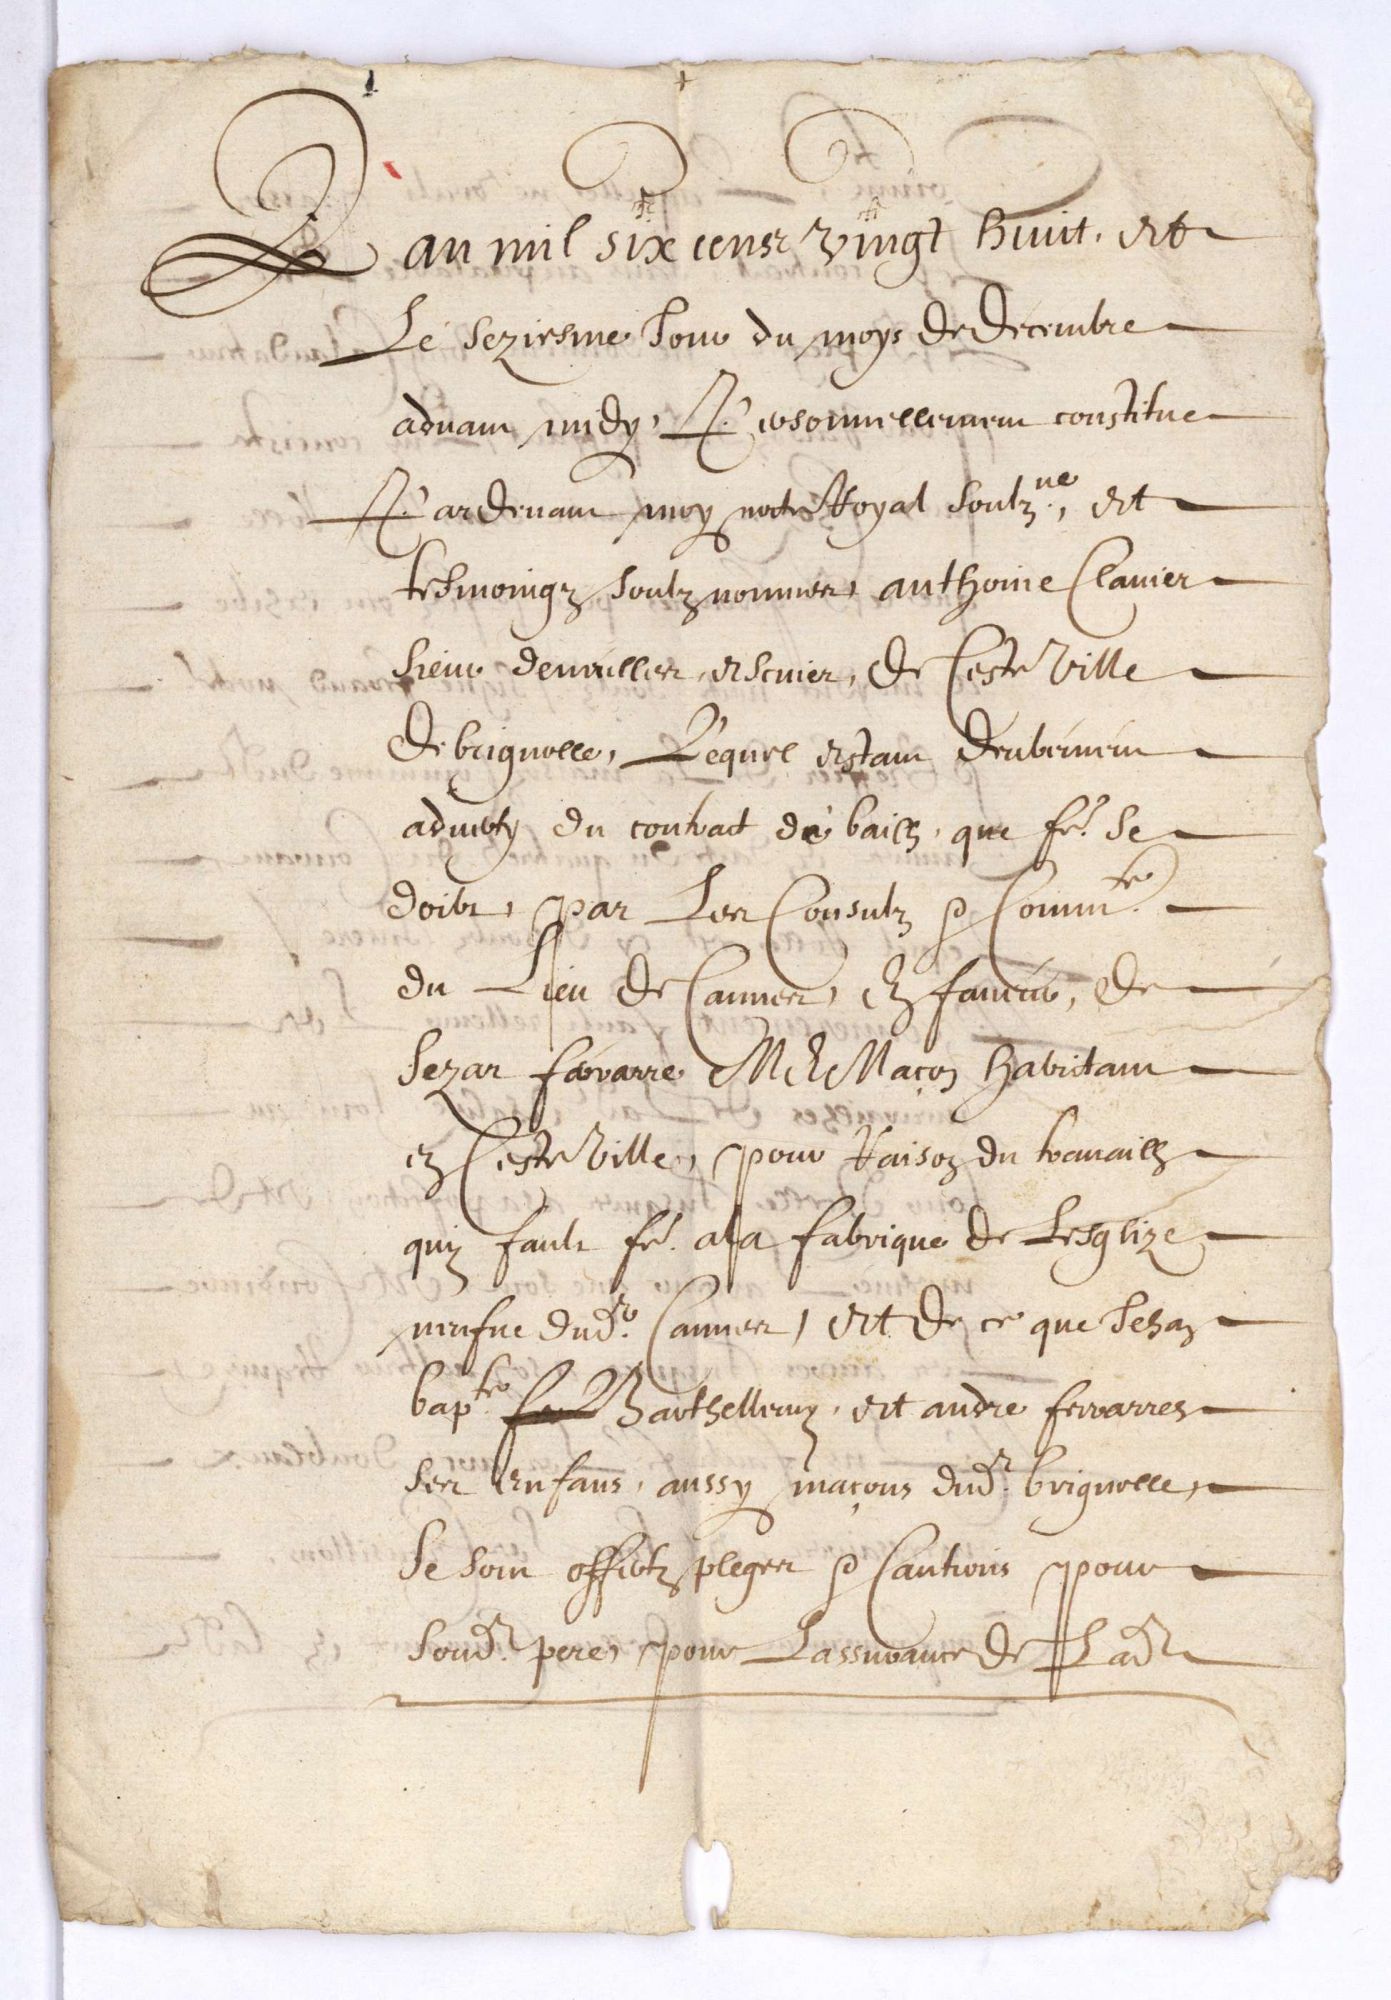 Lan mil six cens vingt huit, et
Le seziesme Jour du moys de decembre
advant midy, Personnellement constitue
Pardevant moy notre Royal soubzne, et
tesmoingz soubznommes, anthoine Clavier
sieur escuier, de Ceste Ville
de brignolle, Lequel estant deubement
adverty du contract de bailh, que fe. se
doibt, par Les Consulz & Commte.
du Lieu de Cannes, en faveur, de
Sezar favarre Me Maçon habitant
en Ceste Ville, pour Raison du travailh
quy fault fe. a la fabrique de Lesglize
neufve dudt. Cannes, et de ce que Jehan
bapte. Barthellemy, et andre ferrarres
ses enfans, aussy maçons dudt. brignolle,
se sont offertz pleges & Cautions pour
soudt. pere, pour Lassurance de Ladt